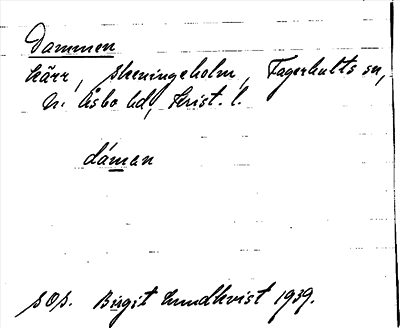 Dammen
kärr, Skeningeholm, Fagerhults sn,
N. Åsbo hd, Krist. l.
dáman
SOS. Birgit Lundkvist 1939.